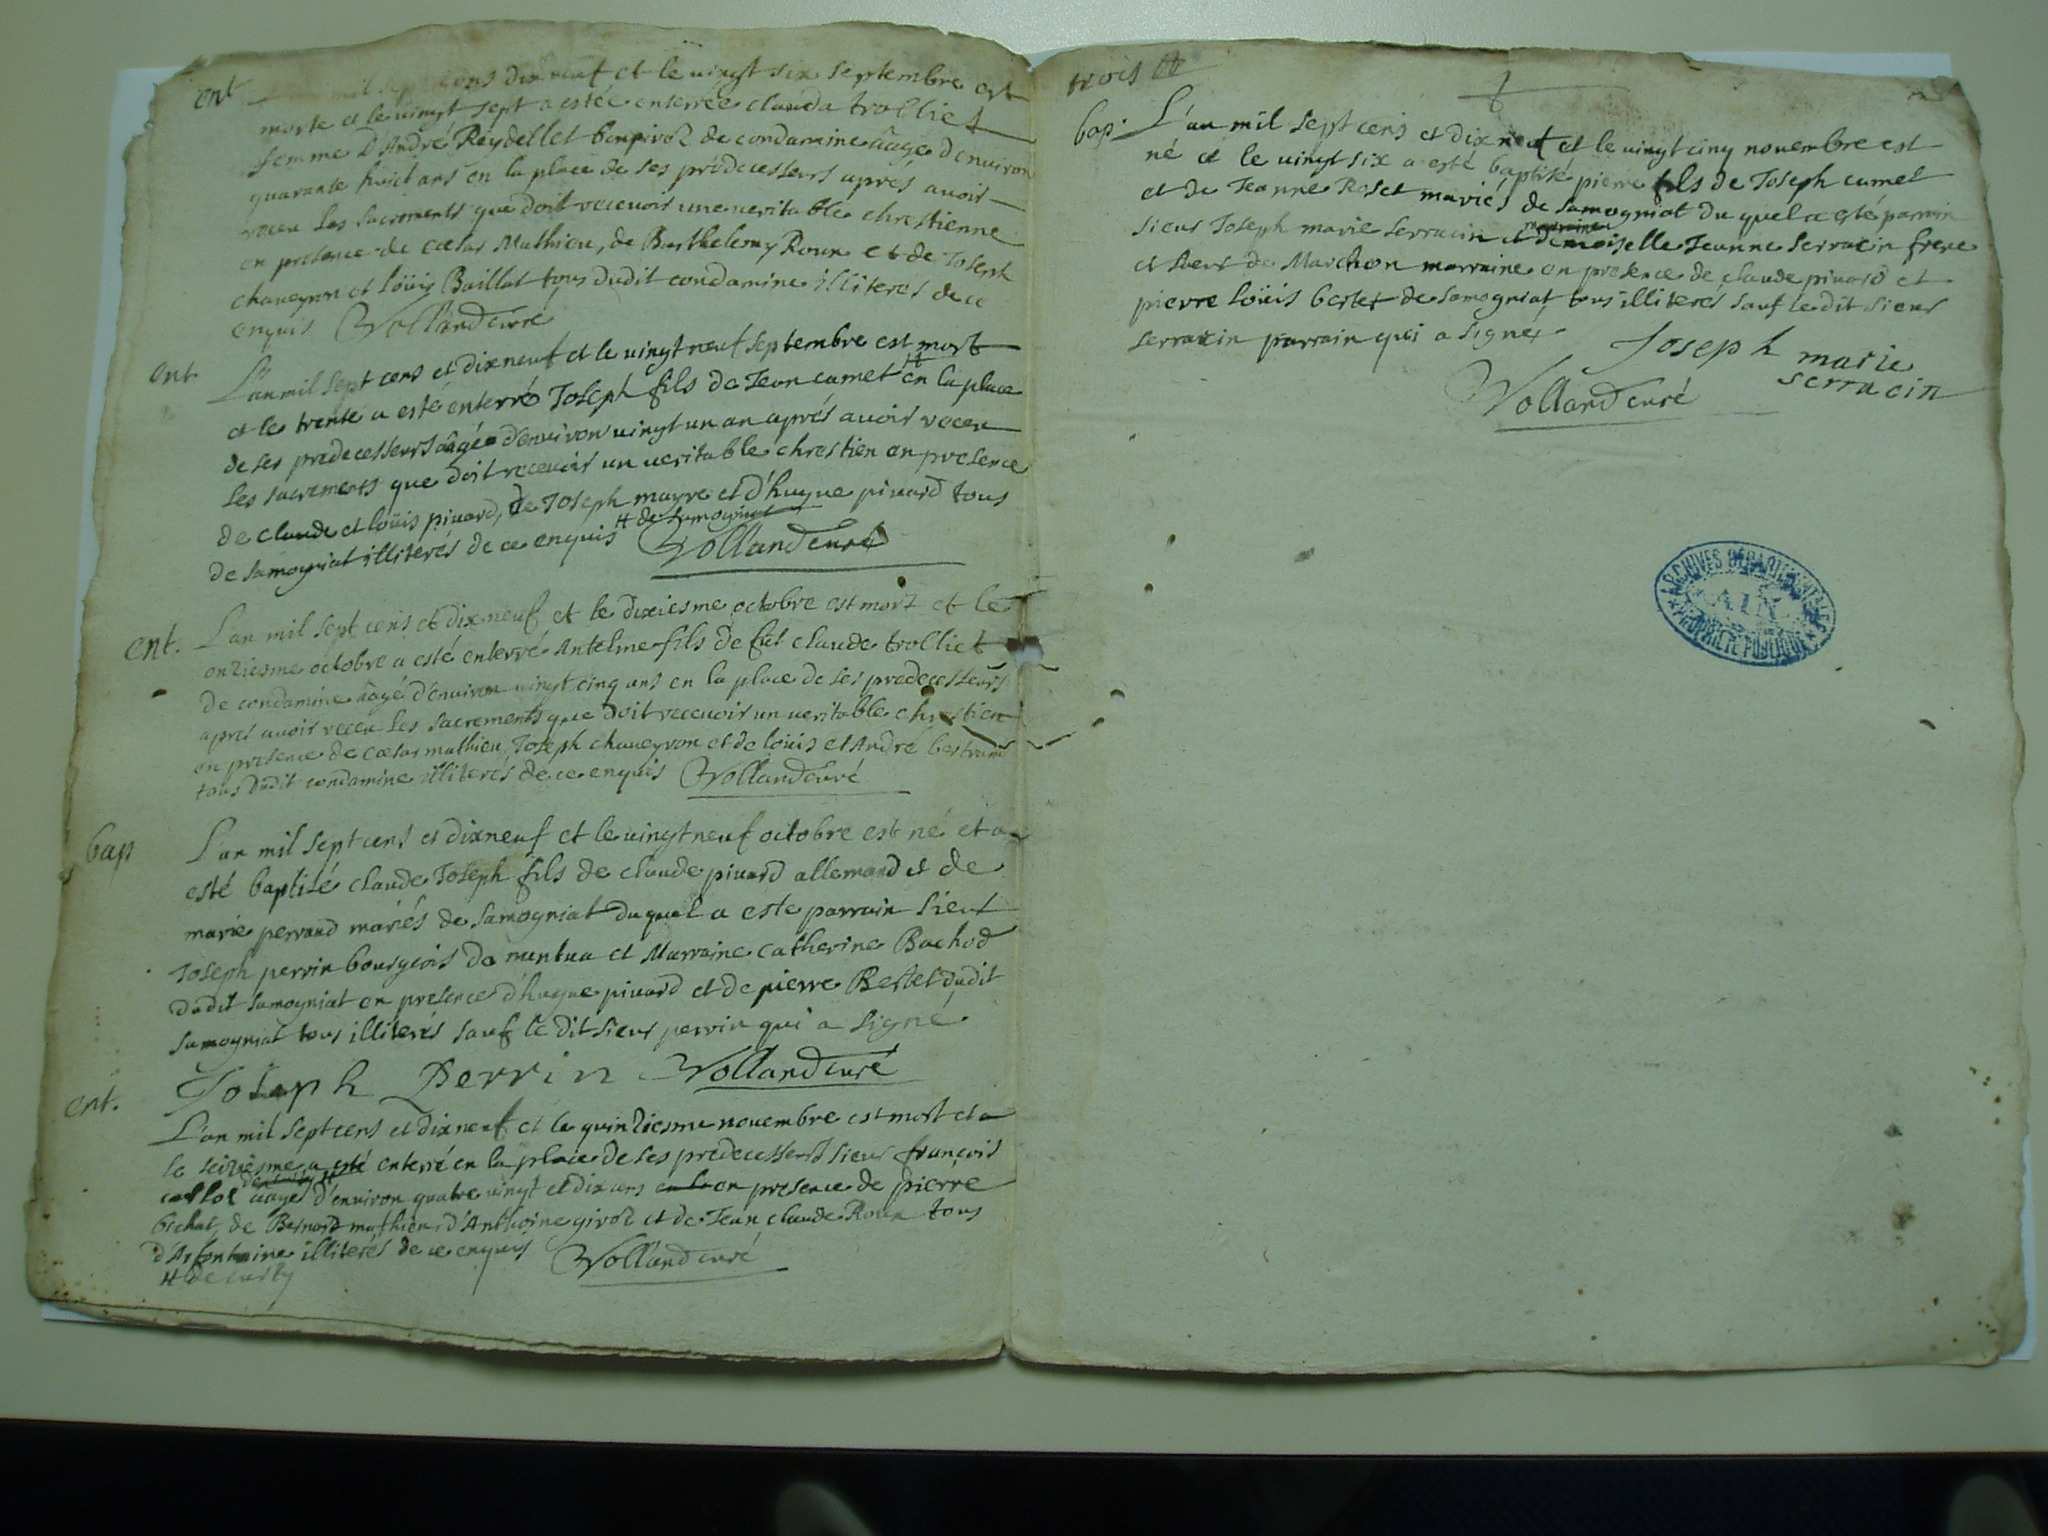 ent
mil sept cens dix neuf et le vingt six septembre est
morte et le vingt sept a estée enterrée clauda trolliet
femme D'André Reydellet bonpivoz de condamine âagé d'environ
quarante huict ans en la place de ses prédecesseurs apres avoir
receu les sacrements que doit recevoir une veritable chrestienne
en presence de cœsar Mathieu, de Barthelemy Roux et de Joseph
chaveyron et Loüis Baillat tous dudit condamine illiterés de ce
enquis Volland curé
ent.
L'an mil sept cens et dixneuf et le vingt neuf septembre est mort
et le trente a esté enterré Joseph fils de Jean camet # en la place
de ses predecesseurs âagé d'environ vingt un an aprés avoir receu
les sacrements que doit recevoir un veritable chrestien en presence
de claude et loüis pivard, de Joseph mayre et d'hugue pivard tous
de samogniat illiterés de ce enquis # de samogniat
Volland curé
ent.
L'an mil sept cens et dixneuf et le dixiesme octobre est mort et le
onziesme octobre a esté enterré Antelme fils de fut claude trolliet
de condamine âagé d'environ vingt cinq ans en la place de ses predecesseurs
apres avoir receu les sacrements que doit recevoir un veritable chrestien
en presence de cœsar mathieu, Joseph chaveyron et de loüis et André bertrand
tous dudit condamine illiterés de ce enquis Volland curé
bap
L'an mil sept cens et dixneuf et le vingt neuf octobre est né et a
esté baptisé claude Joseph fils de claude pivard allemand et de
marie perraud mariés de samogniat duquel a este parrain sieur
Joseph perrin bourgeois de nantua et Marraine catherine Bachod
dudit samogniat en presence d'hugue pivard et de pierre Bertet dudit
samogniat tous illiterés sauf le dit sieur perrin qui a signé
Joseph Perrin Volland curé
ent.
L'an mil sept cens et dixneuf et le quinziesme novembre est mort et a
le seiziesme a esté enterré en la place de ses predecesseurs sieur françois
âagé d'environ quatre vingt et dix ans en la en presence de pierre
bichat, de Bernard mathieu d'Anthoine givoz et de Jean claude Roux tous
d'Arfontaine illiterés de ce enquis Volland curé
# de
trois
bap.
L'an mil sept cens et dix neuf et le vingt cinq novembre est
né et le vingt six a esté baptisé pierre fils de Joseph camet
et de Jeanne Roset mariés de samogniat du quel a esté parrain
sieur Joseph marie serracin et marraine demoiselle Jeanne serracin frere
et sœur de Marchon marraine en presence de claude pivard et
pierre loüis bertet de samogniat, tous illiterés sauf le dit sieur
serracin parrain qui a signé
Joseph marie
serracin
Volland curé
ARCHIVES DÉPARTEMENTALES
AIN
PROPRIÉTÉ PUBLIQUE